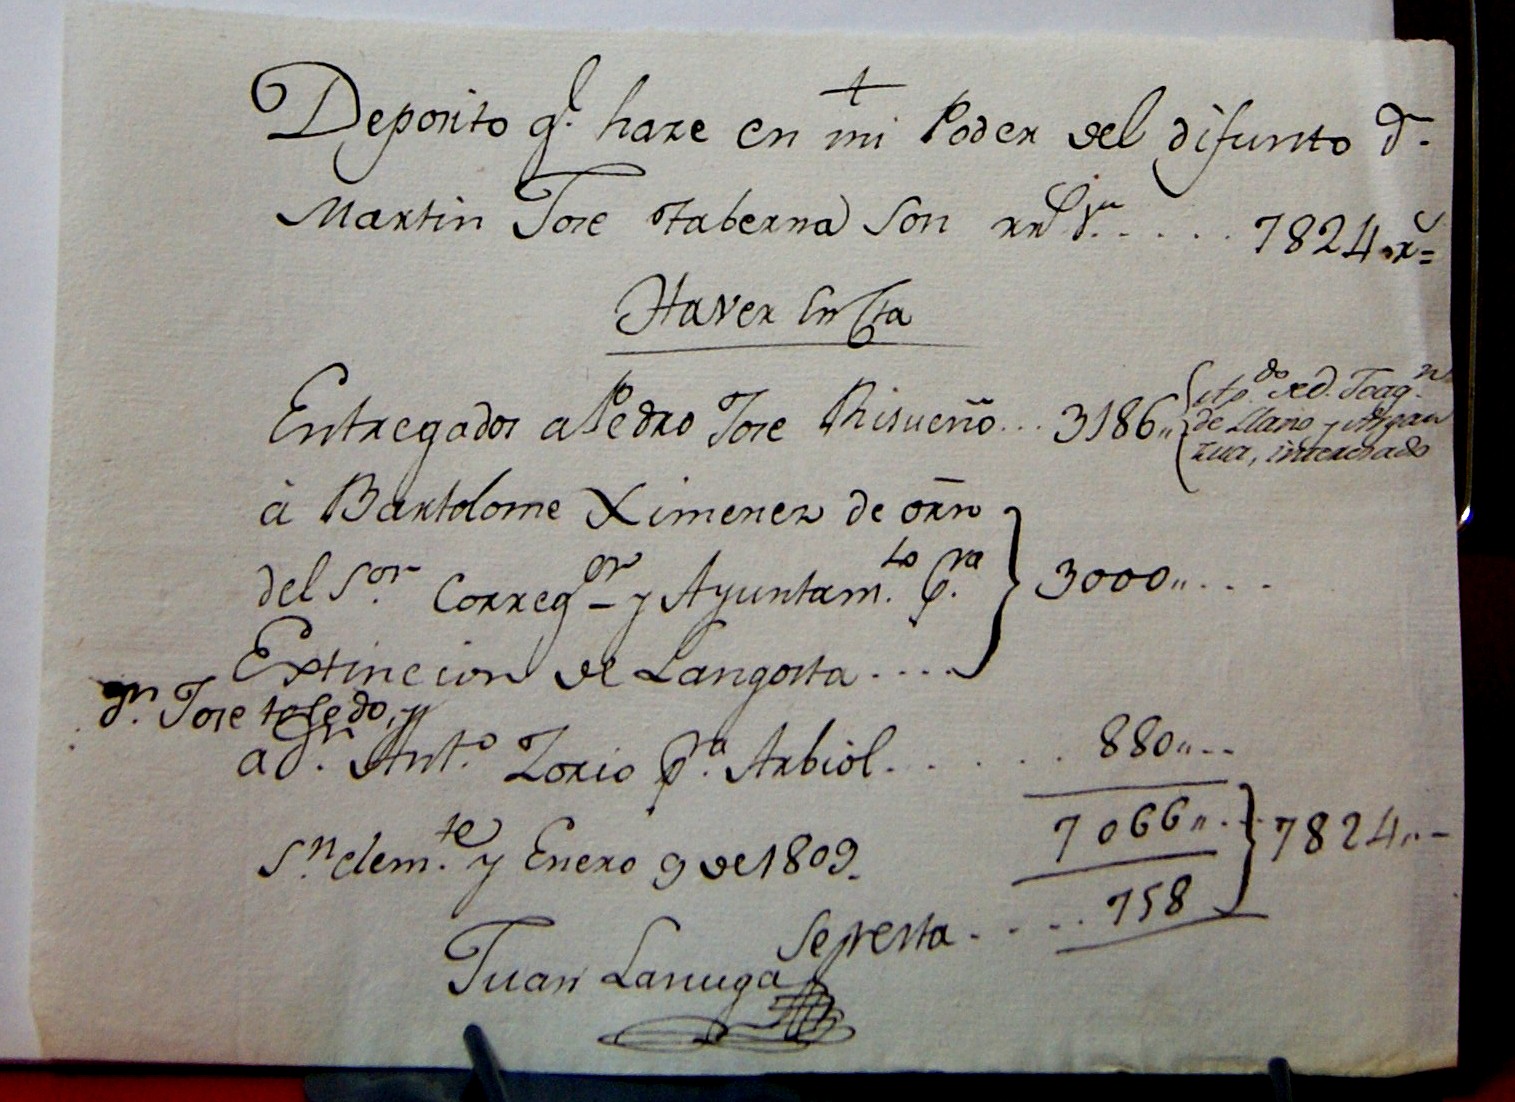 Deposito q.e haze en mi Poder del difunto d.n
Martin Jose Taberna Son rs. Vn. . . . . 7824 „ r.s =
Haver en Cta
Entregados a Pedro Jose Risueño . . . 3186 „
apo.do de d. Joaq.n
de Llano y
, interesado
à Bartolome Ximenez de orn
del S.or Correg.or y Ayuntam.to p.ra
Extincion de Langosta . . . . 3000 „ . . . .
d.n Jose toledo, y
a d.n Ant.o Zorio p.a Arbiol . . . . . . 880 „ . . .
7066 „ . . 7824 „ -
S.n clem.te y Enero 9 de 1809.
Se resta . . . . . 758
Juan Lanuga